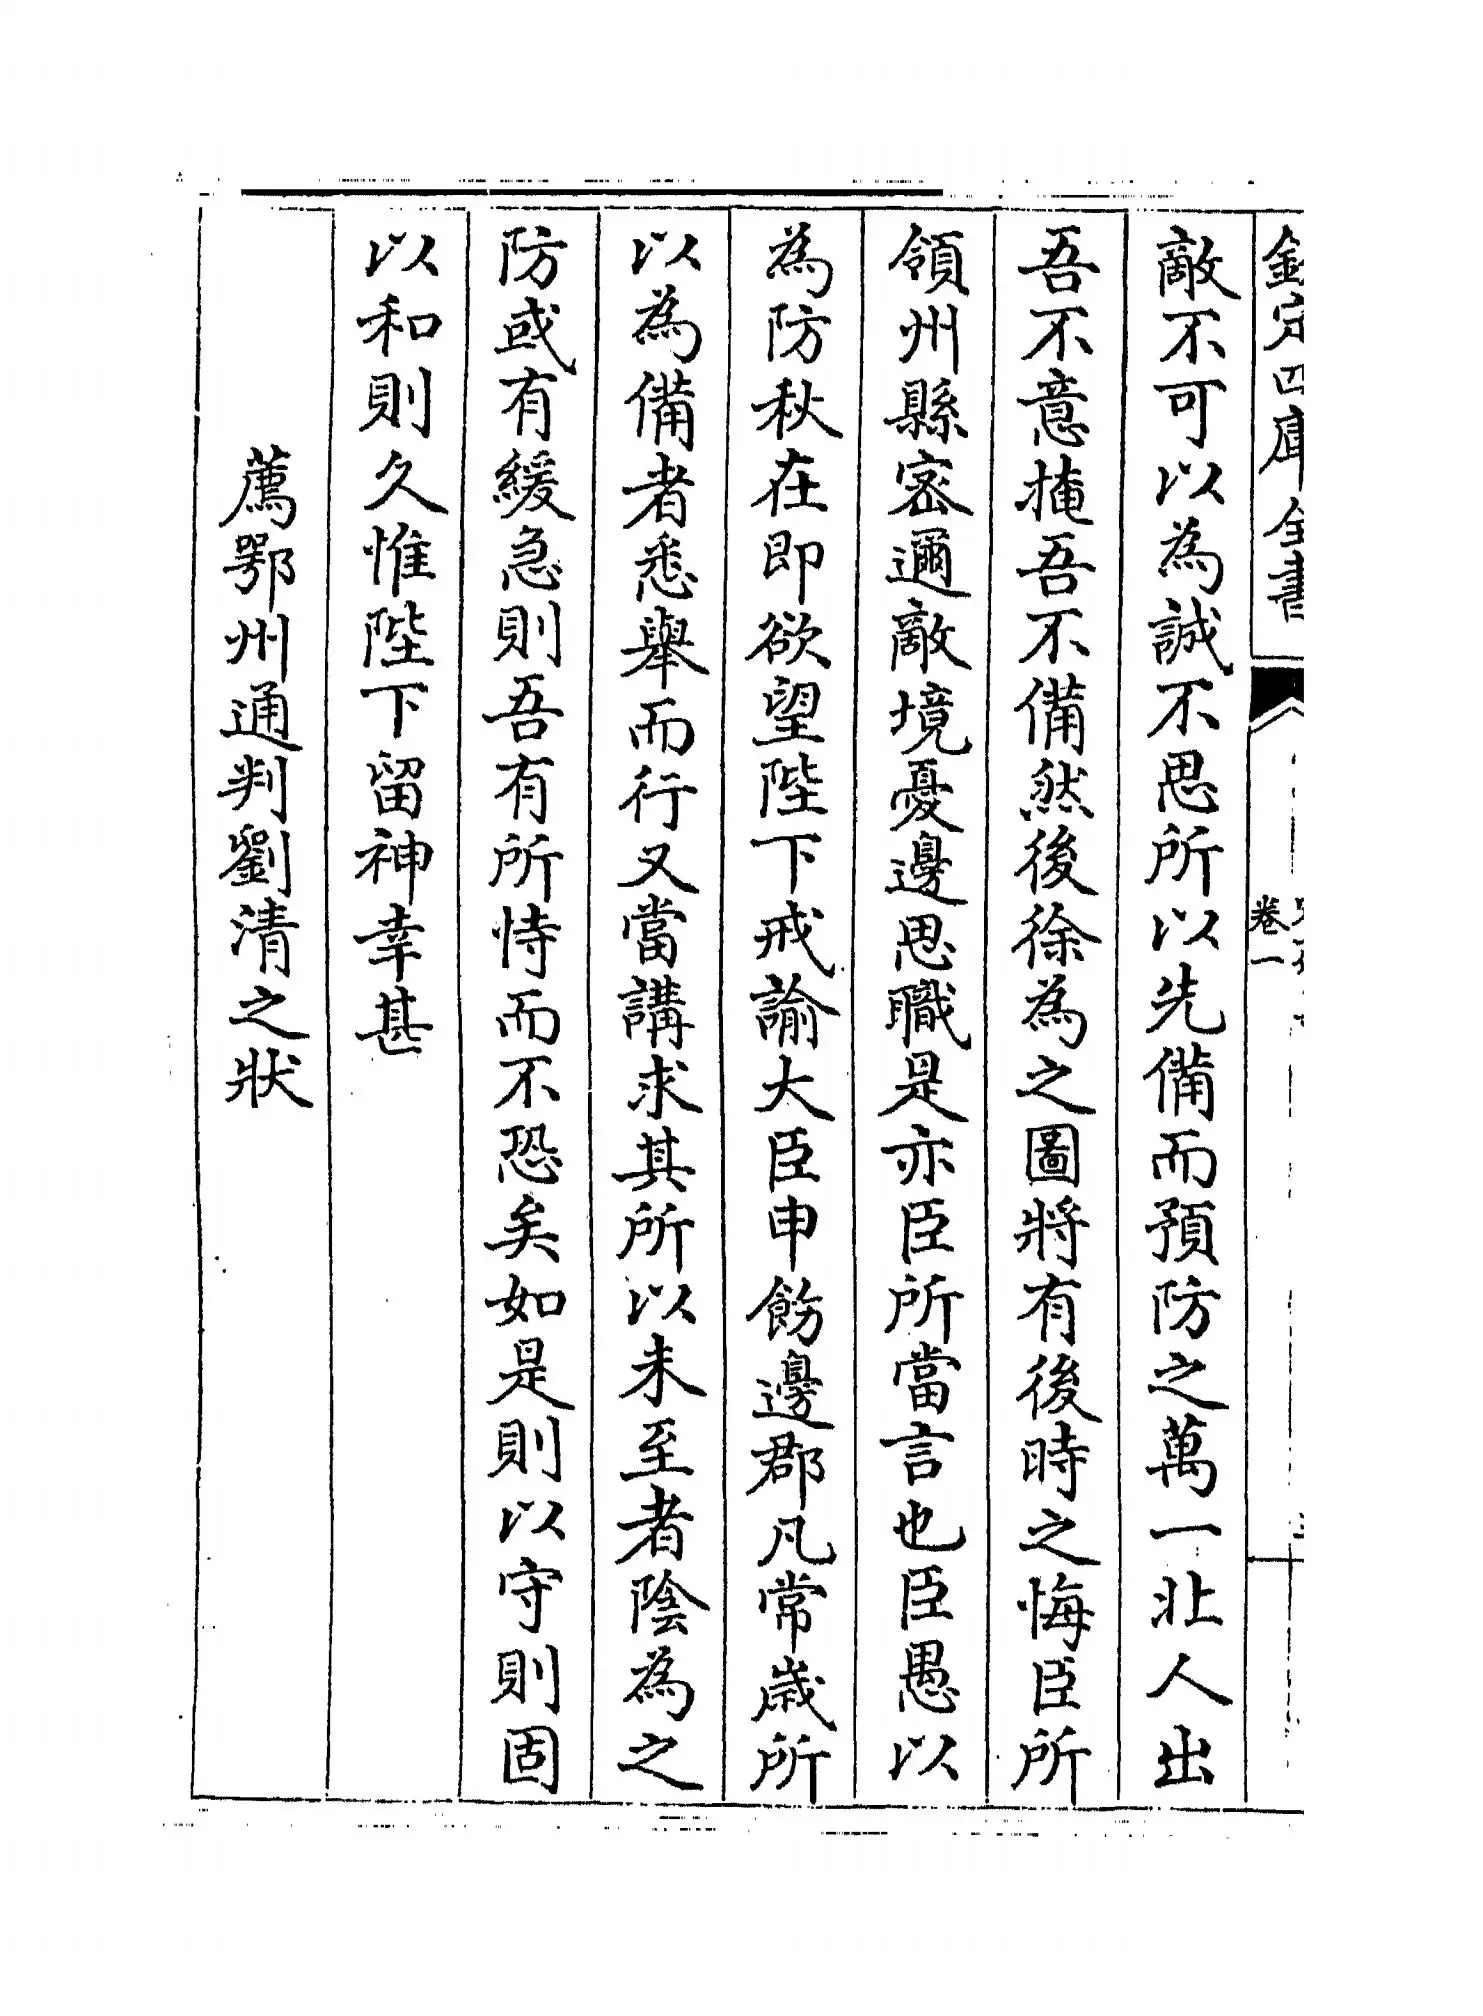 欽定四庫全書
卷一
敵不可以為誠不思所以先備而預防之萬一北人出
吾不意掩吾不備然後徐為之圖將有後時之悔臣所
領州縣密邇敵境憂邊思職是亦臣所當言也臣愚以
為防秋在即欲望陛下戒諭大臣申飭邊郡凡常歲所
以為備者悉舉而行又當講求其所以未至者陰為之
防或有緩急則吾有所恃而不恐矣如是則以守則固
以和則久惟陛下留神幸甚
薦鄂州通判劉清之狀